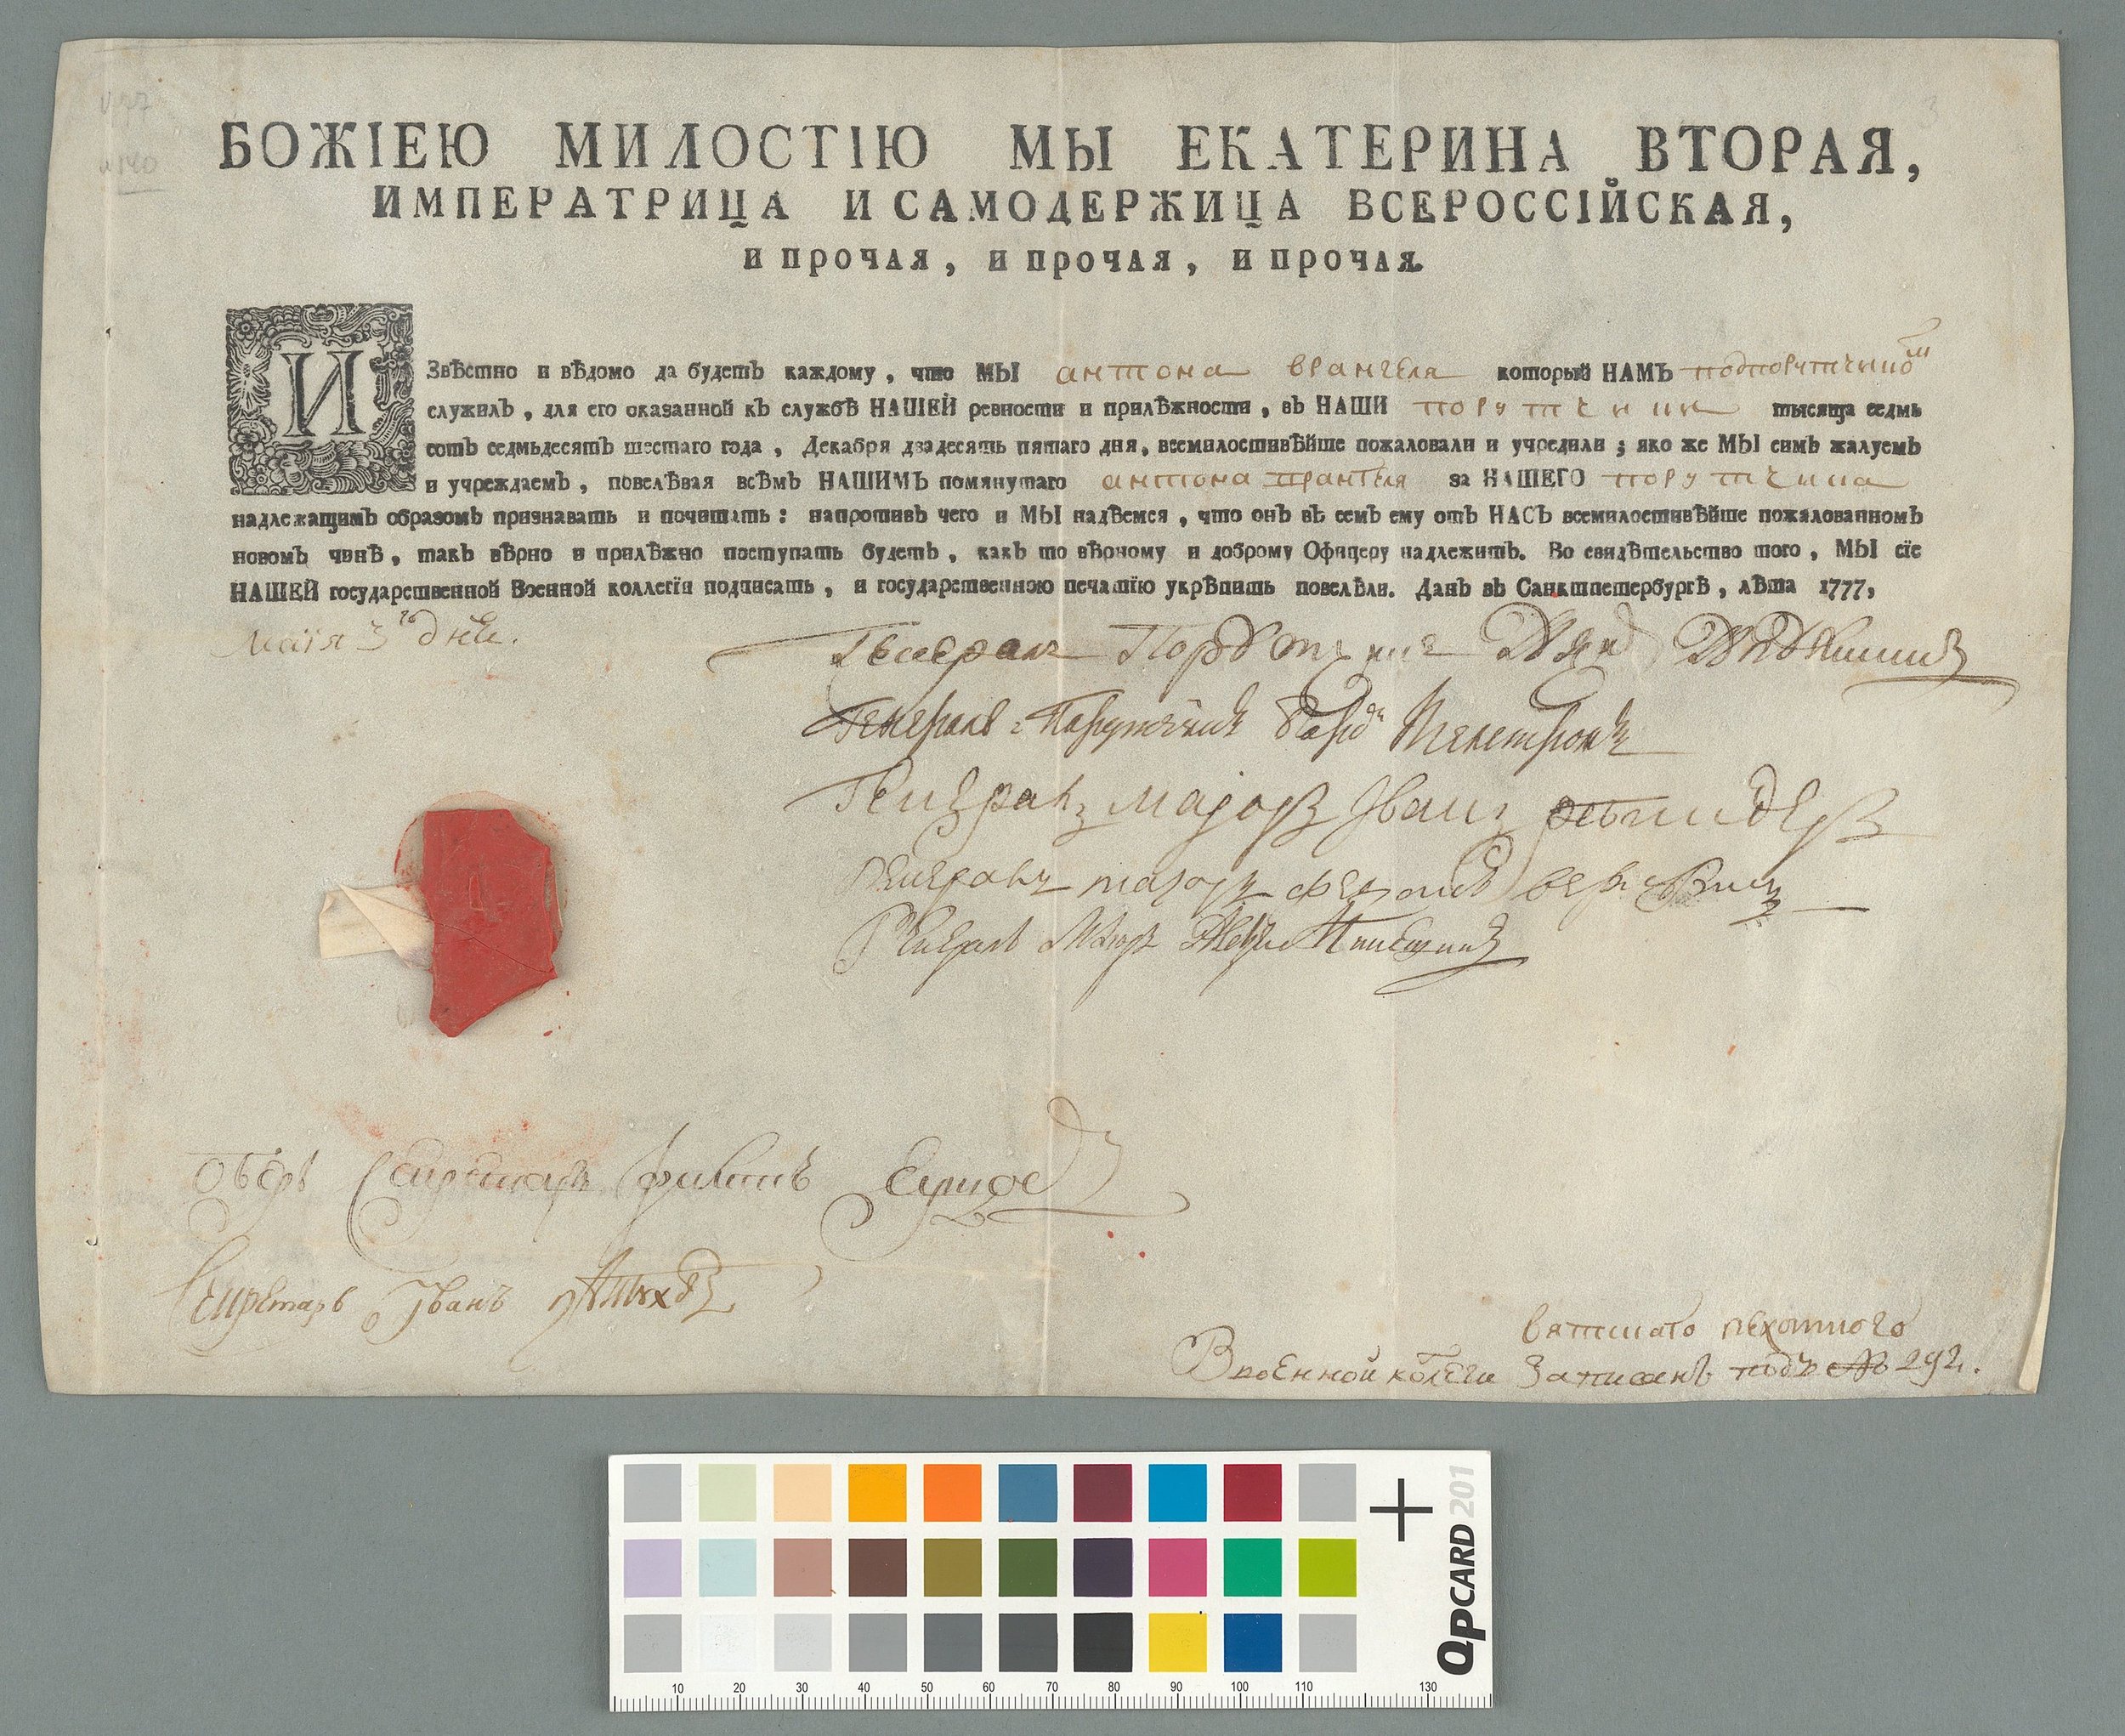 БОЖІЕЮ МИЛОСТІЮ МЫ ЕКАТЕРИНА ВТОРАЯ,
ИМПЕРАТРИЦА И САМОДЕРЖИЦА ВСЕРОССІЙСКАЯ,
И ПРОЧАЯ, И ПРОЧАЯ, И ПРОЧАЯ.
ИЗвѣстно и вѣдомо да будетъ каждому, что МЫ антона врангеля который НАМЪ подпорутчикомъ
служилъ, для его оказанной къ службѣ НАШЕЙ ревности и прилѣжности, въ НАШИ порутчики тысяща седмь
сотъ седмьдесятъ шестаго года, Декабря двадесять пятаго дня, всемилостивѣйше пожаловали и учредили; яко же МЫ симъ жалуемъ
и учреждаемъ, повелѣвая всѣмъ НАШИМЪ помянутаго антона врангеля за НАШЕГО порутчика
надлежащимъ образомъ признавать и почитать: напротивъ чего и МЫ надѣемся, что онъ въ семъ ему отъ НАСЪ всемилостивѣйше пожалованномъ
новомъ чинѣ, такъ вѣрно и прилѣжно поступать будетъ, какъ то вѣрному и доброму Офицеру надлежитъ. Во свидѣтельство того, МЫ сїе
НАШЕЙ государственной Военной коллегїи подписать, и государственною печатїю укрѣпить повелѣли. Данъ въ Санктпетербургѣ, лѣта 1777,
маїя 3го дня.
Генералъ Порутчикъ
Генералъ-Порутчикъ
Генералъ маіоръ Іванъ
Генералъ маіоръ
Генералъ Маіоръ
Оберъ Секретарь Филипъ
Секретарь Іванъ
вятскаго пѣхотного
В военной колегіи Записанъ подъ № 292.
10 20 30 40 50 60 70 80 90 100 110 130
QPCARD 201